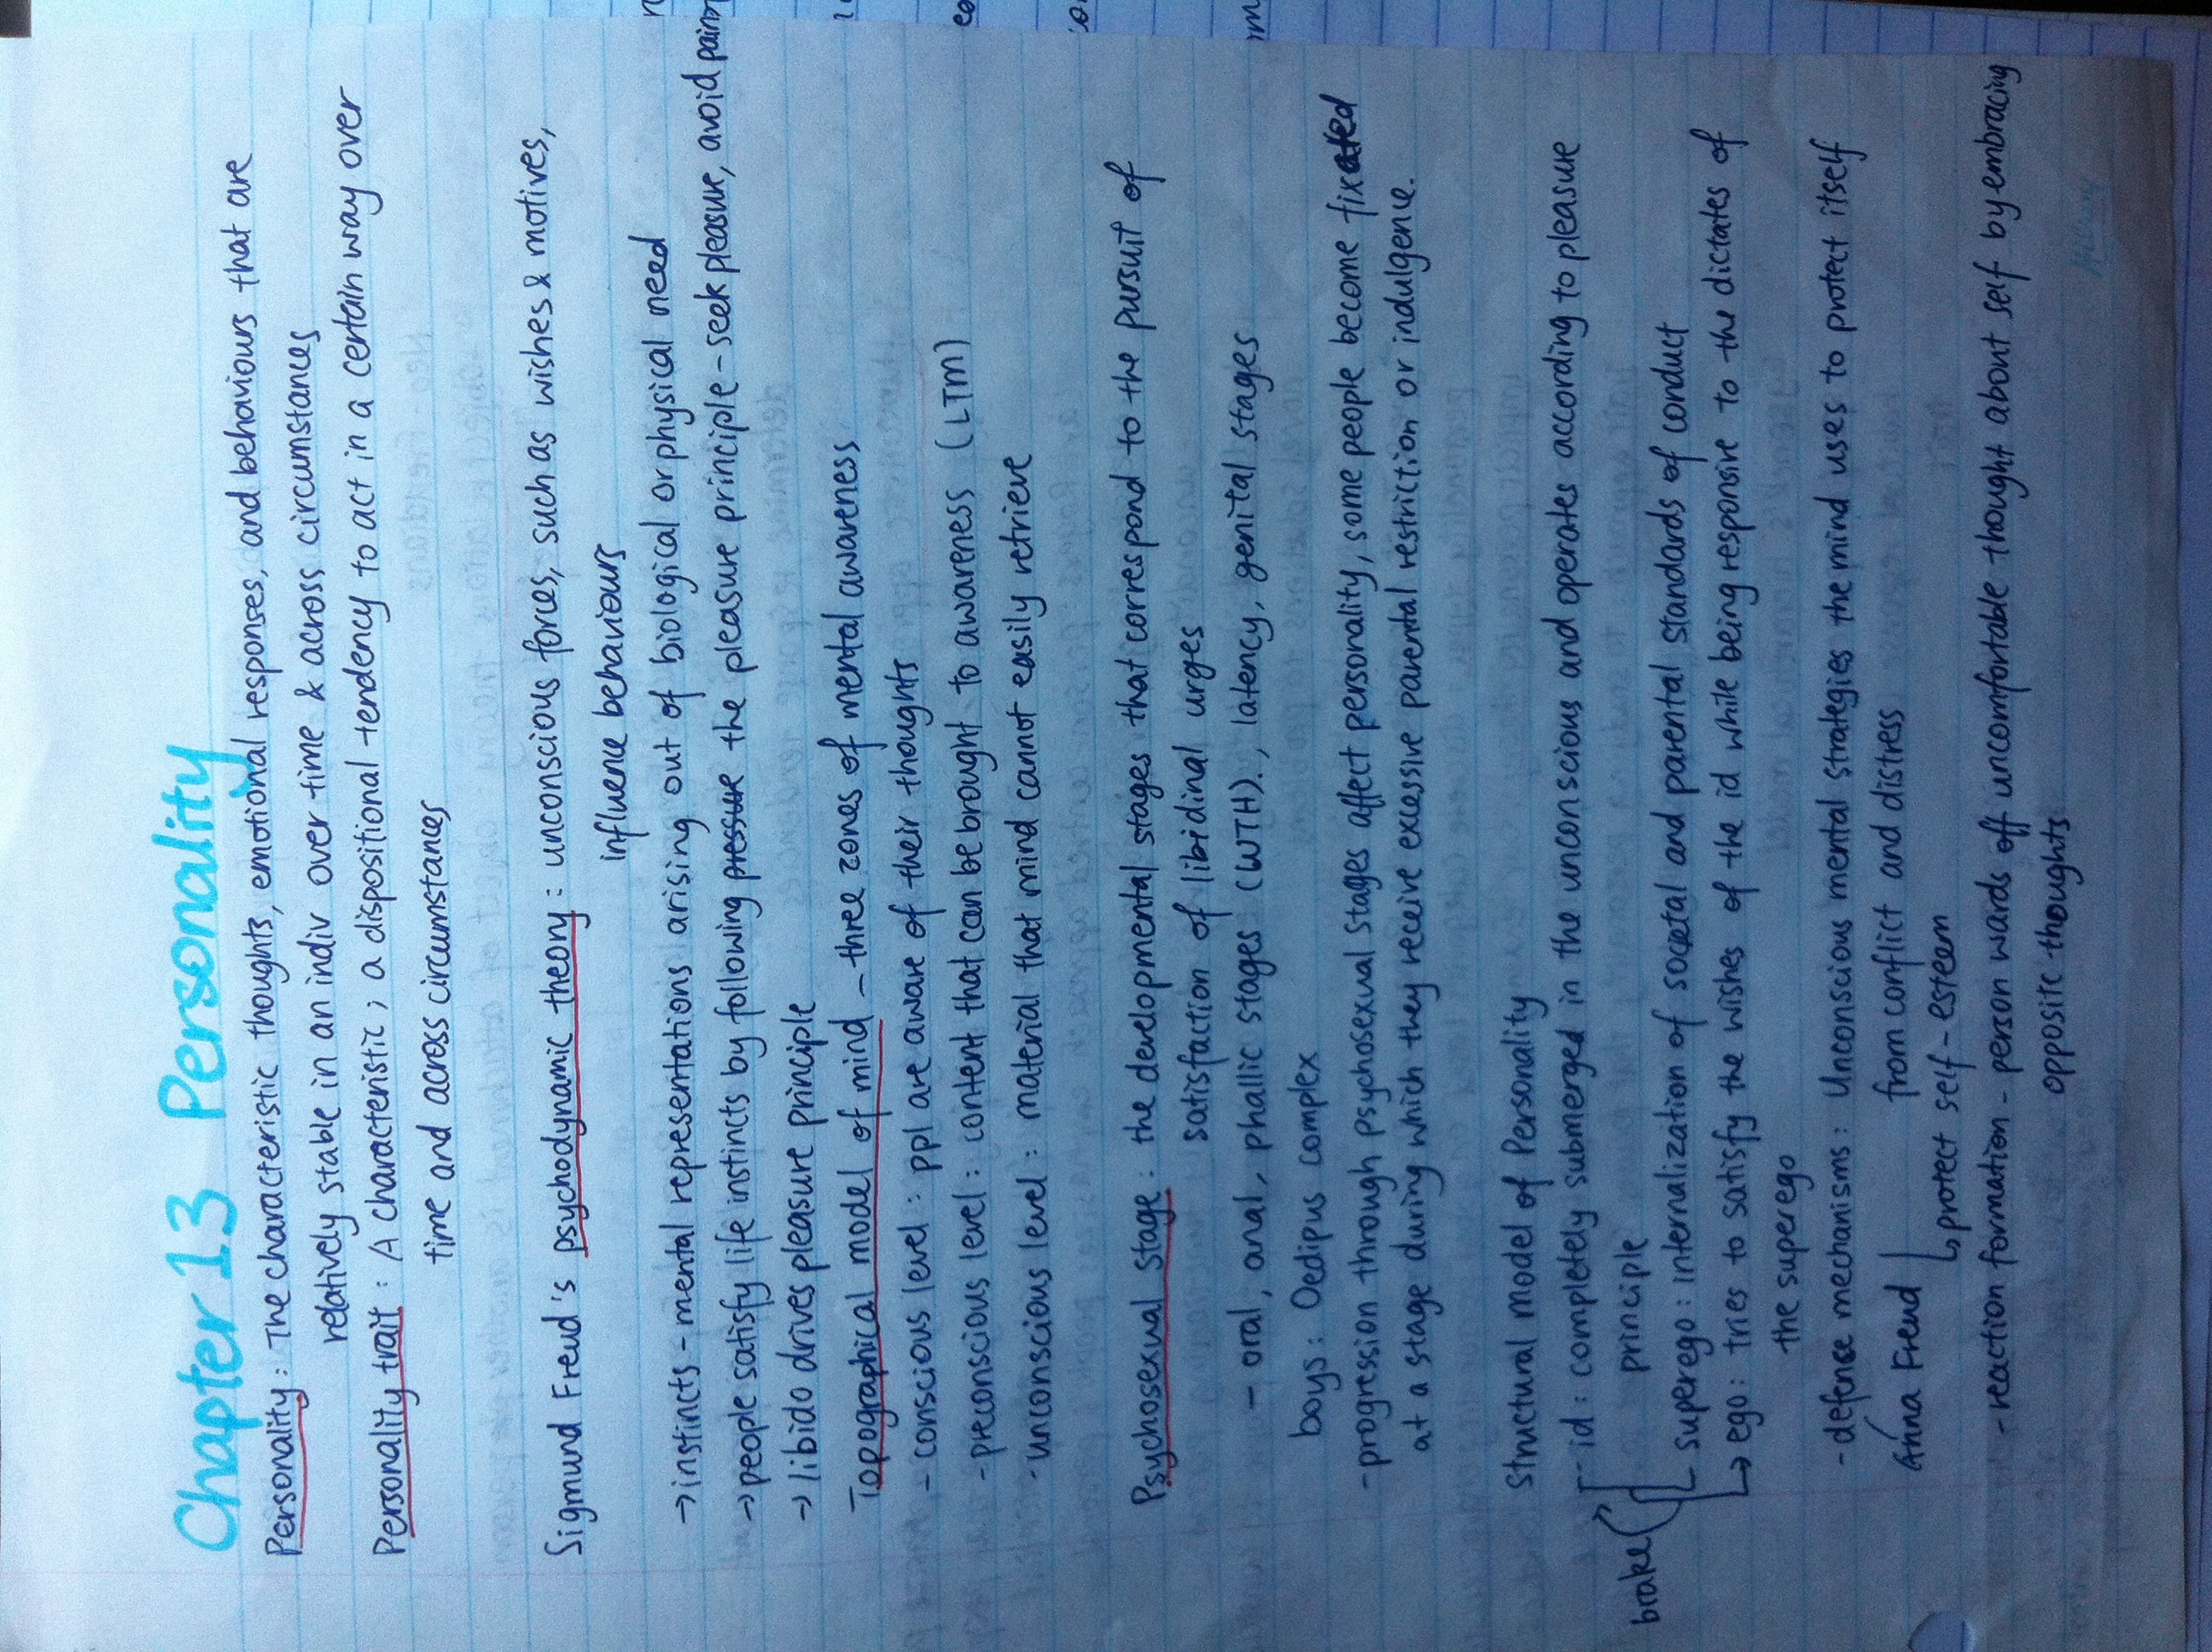 Chapter 13 Personality
Personality: The characteristic thoughts, emotional responses, and behaviours that are
relatively stable in an indiv over time & across circumstances
Personality trait: A characteristic; a dispositional tendency to act in a certain way over
time and across circumstances
Sigmund Freud's psychodynamic theory: unconscious forces, such as wishes & motives,
influence behaviours
→ instincts - mental representations arising out of biological or physical need
→ people satisfy life instincts by following pressure the pleasure principle - seek pleasure, avoid pain
→ libido drives pleasure principle
Topographical model of mind - three zones of mental awareness
- conscious level: ppl are aware of their thoughts
- preconscious level: content that can be brought to awareness (LTM)
- unconscious level: material that mind cannot easily retrieve
Psychosexual stage: the developmental stages that correspond to the pursuit of
satisfaction of libidinal urges
- oral, anal, phallic stages (WTH)., latency, genital stages
boys: Oedipus complex
- progression through psychosexual stages affect personality, some people become fixated
at a stage during which they receive excessive parental restriction or indulgence.
Structural model of Personality
- id: completely submerged in the unconscious and operates according to pleasure
principle
brake
superego: internalization of societal and parental standards of conduct
↳ ego: tries to satisfy the wishes of the id while being responsive to the dictates of
the superego
- defense mechanisms: Unconscious mental strategies the mind uses to protect itself
from conflict and distress
Anna Freud
↳ protect self-esteem
- reaction formation - person wards off uncomfortable thought about self by embracing
opposite thoughts